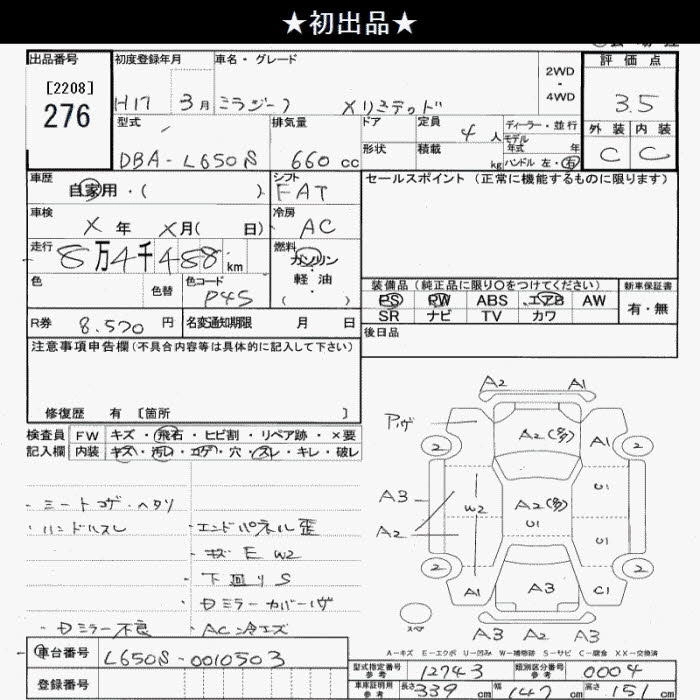 ★初出品★
出品番号 初度登録年月 車名・グレード 2WD・4WD 評価点
[2208]
276
H17 3月 ミラジーノ Xリミテッド 3.5
型式 排気量 ドア 定員 4人 ディーラー・並行 外装 内装
モデル年式 年
DBA-L650S 660cc 形状 積載 kg ハンドル 左・右 C C
車歴 自家用・( ) シフト FAT セールスポイント(正常に機能するものに限ります)
車検 X年 X月( 日) 冷房 AC
走行 8万4千488km 燃料 ガソリン・軽油( )
色 色替 色コード P45 装備品(純正品に限り○をつけてください) 新車保証書
PS PW ABS エアB AW 有・無
SR ナビ TV カワ
R券 8.570円 名変通知期限 月 日 後日品
注意事項申告欄(不具合内容等は具体的に記入して下さい)
修復歴 有 [箇所 ]
検査員 FW キズ・飛石・ヒビ割・リペア跡・×要
記入欄 内装 キズ・汚レ・コゲ・穴・スレ・キレ・破レ
A2 A1
A2(多) A1
2 2
A3 U1
W2 A2(多)
A2 U1 U1
2 2
A1 A3 C1
スペア
A3 A2 A3
・シートコゲ・ヘタリ
・ハンドルスレ ・エンドパネル歪
・キズ E W2
・下回りS
・Dミラーカバーハゲ
・Dミラー不良 ・AC冷エズ
A-キズ E-エクボ U-凹み W-補修跡 S-サビ C-腐食 XX-交換済
車台番号 L650S-0010503 型式指定番号 参考 12743 類別区分番号 参考 0004
登録番号 車庫証明用 参考 長さ 339cm 幅 147cm 高さ 151cm